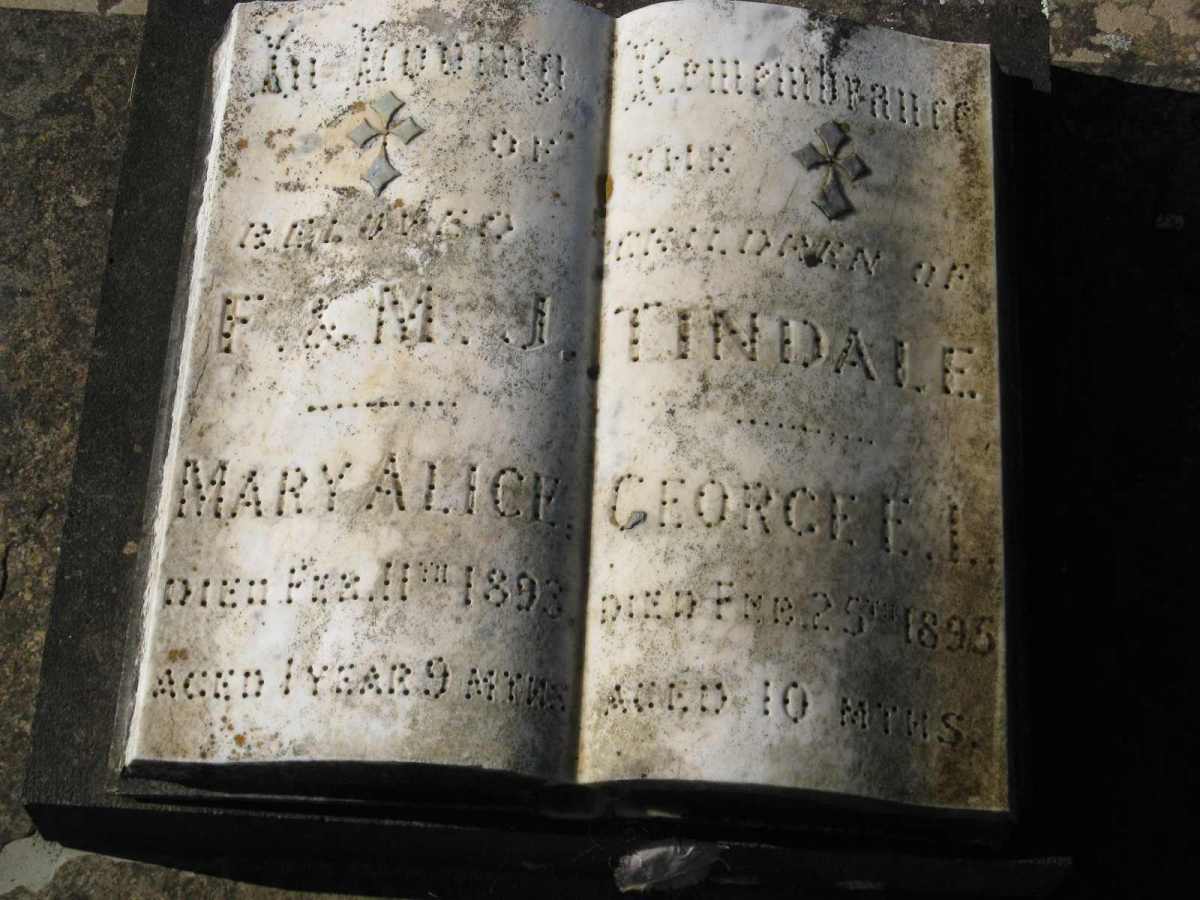 In Loving Remembrance
OF THE
BELOVED CHILDREN OF
F. & M. J. TINDALE
MARY ALICE.
DIED FEB. 11TH 1893.
AGED 1 YEAR 9 MTHS
GEORGE E. L.
DIED FEB. 25TH 1895
AGED 10 MTHS.